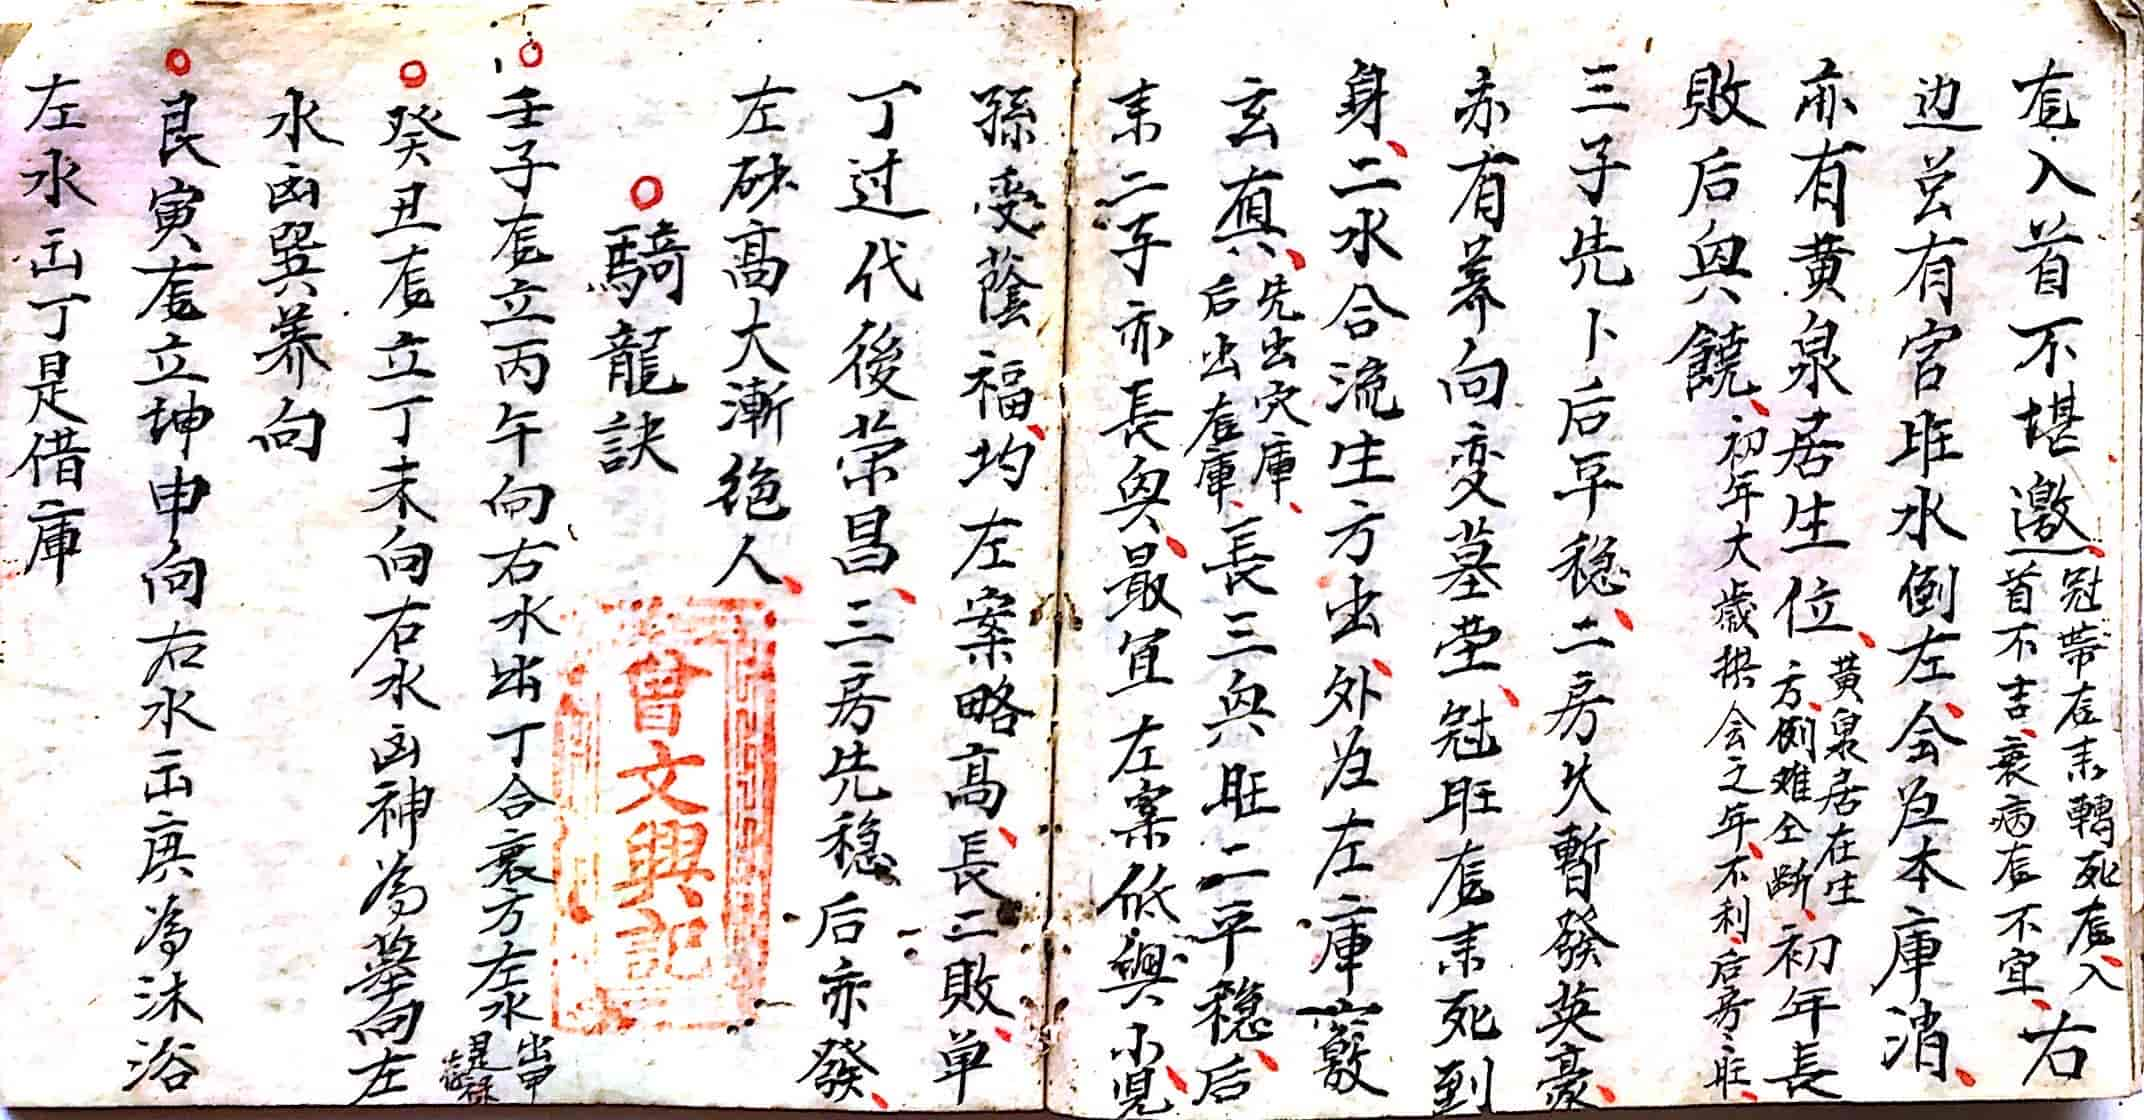 㡳入首不堪邀冠帶㡳来轉死㡳入首不吉衰病㡳不宜右
边㒷有官旺水倒左会为本庫消
亦有黄泉居生位黃泉居在生方倒难全断初年長
敗后㒷饒初年大歲拱会之年不利后房々旺
三子先卜后平穏二房火暫發英豪
亦有养向变墓茔冠旺㡳来死到
身二水合流生方出外为左庫竅
玄真先出穴庫后出㡳庫長三㒷旺二平穏后
来二子亦長㒷最宜左案低興小児
孫受蔭福均左案略高長二敗单
丁过代後荣昌三房先穏后亦發
左砂高大漸绝人
騎龍訣
曾文興記
壬子㡳立丙午向右水出丁合衰方左水出甲是祿存
癸丑㡳立丁未向右水凶神為墓向左
水凶巽养向
艮寅㡳立坤申向右水出庚為沐浴
左水出丁是借庫